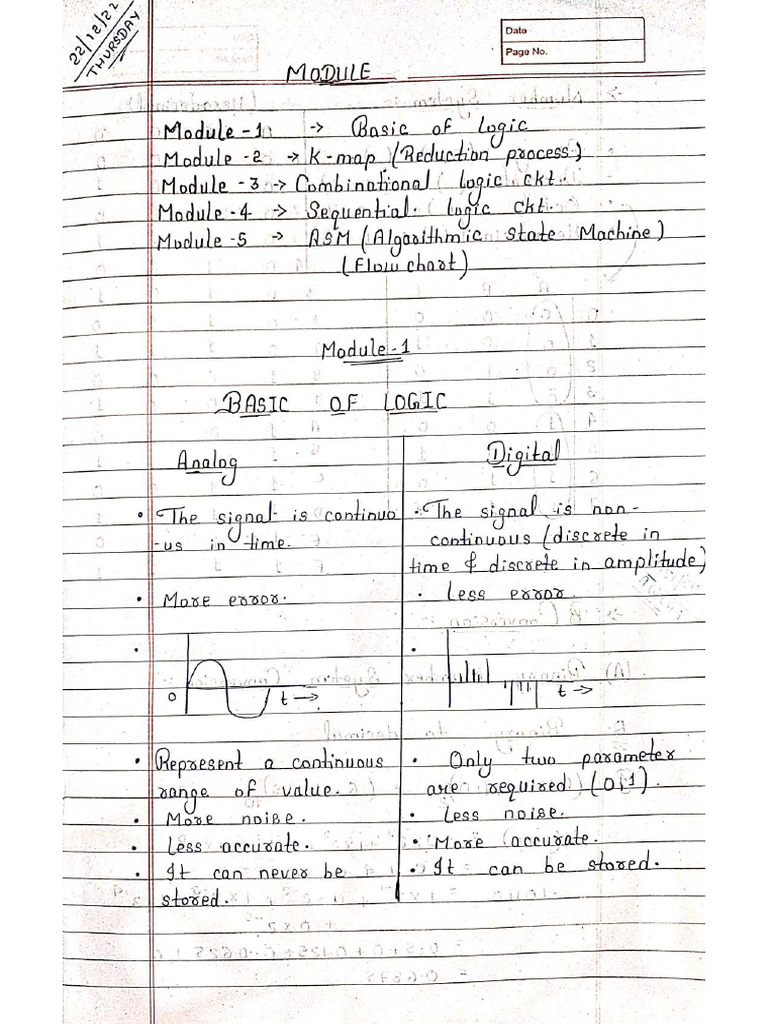 22/12/22
THURSDAY
Date
Page No.
MODULE
Module-1 -> Basic of logic
Module-2 -> K-map (Reduction process)
Module-3 -> Combinational logic ckt.
Module-4 -> Sequential logic ckt.
Module-5 -> ASM (Algorithmic State Machine)
(Flow chart)
Module-1
BASIC OF LOGIC
Analog
• The signal is continuo
-us in time.
• More error.
•
0 t ->
• Represent a continuous
range of value.
• More noise.
• Less accurate.
• It can never be
stored.
Digital
• The signal is non-
continuous (discrete in
time & discrete in amplitude)
• Less error.
•
t ->
• Only two parameter
are required (0,1).
• Less noise.
• More accurate.
• It can be stored.